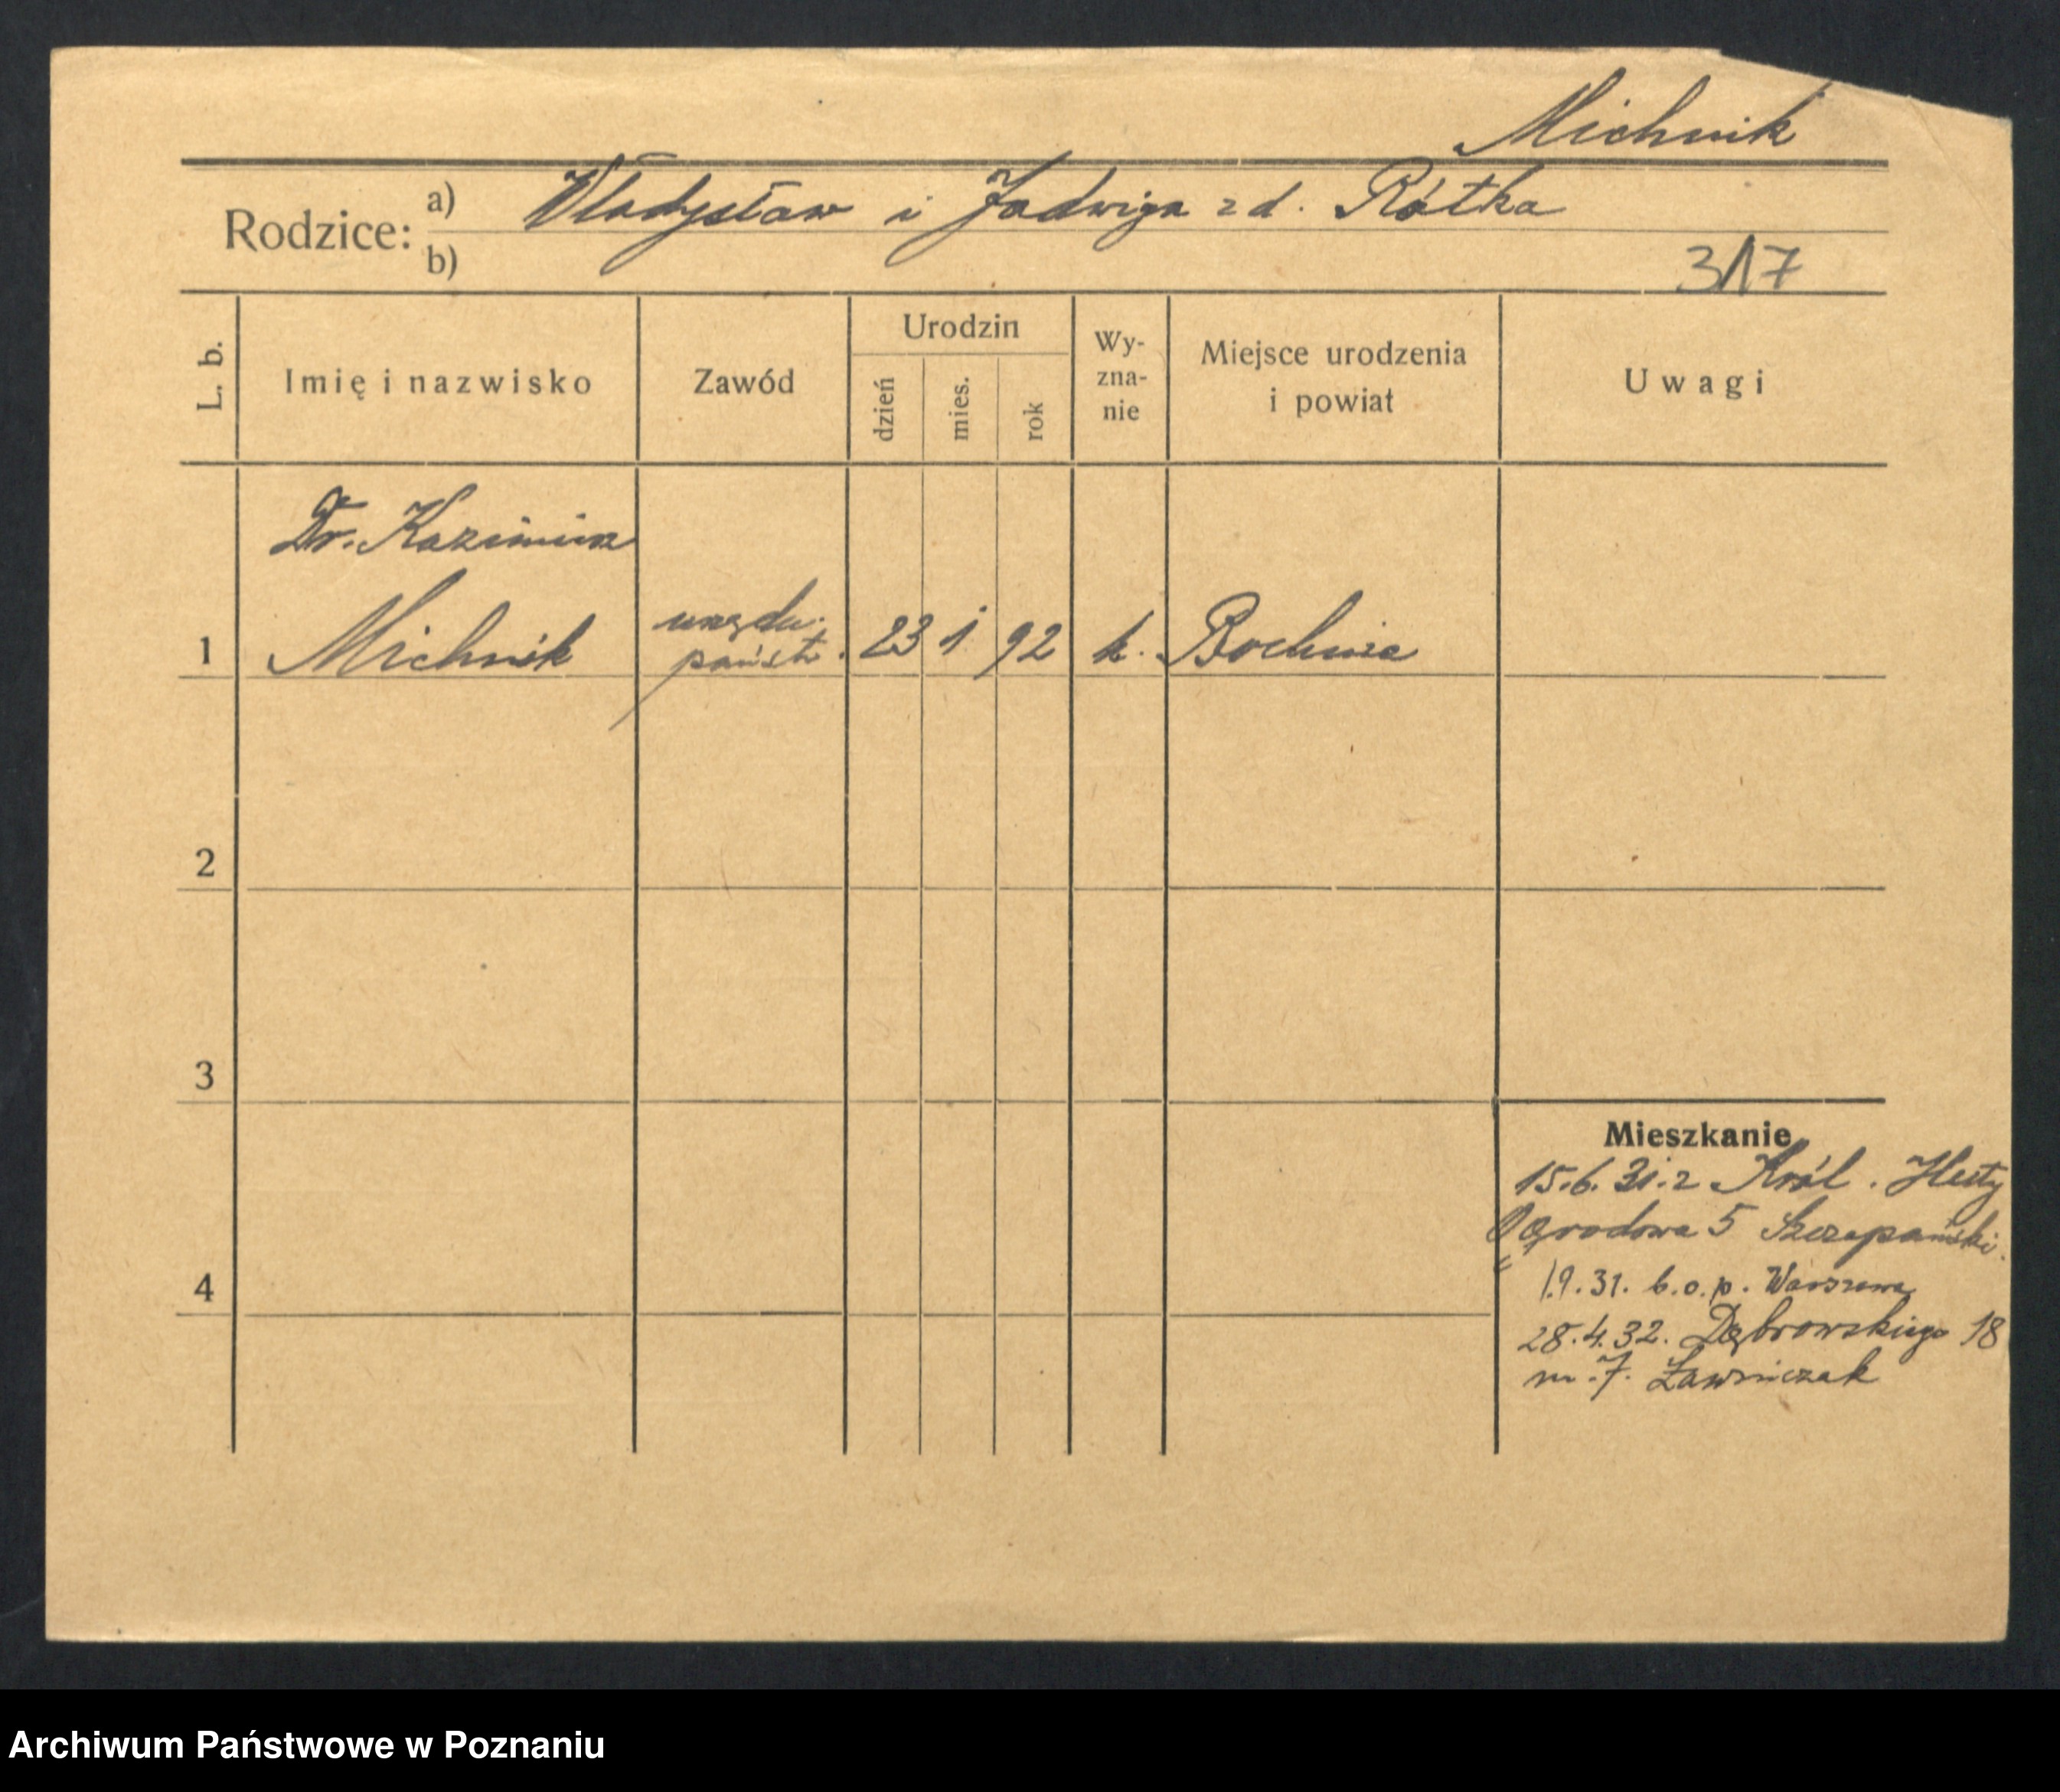 Michnik
Rodzice: a) Władysław i Jadwiga z d. Rótka
b)
317
L. b.
Imię i nazwisko
Zawód
Urodzin
dzień
mies.
rok
Wy-
zna-
nie
Miejsce urodzenia
i powiat
Uwagi
Dr. Kazimierz
1 Michnik urzędn. państw. 23 1 92 k. Bochnia
2
3
4
Mieszkanie
15.6.31. z Król. Huty
Ogrodowa 5 Szczepański.
1.9.31. b.o.p. Warszawa
28.4.32. Dąbrowskiego 18
m. 7. Ławniczak
Archiwum Państwowe w Poznaniu